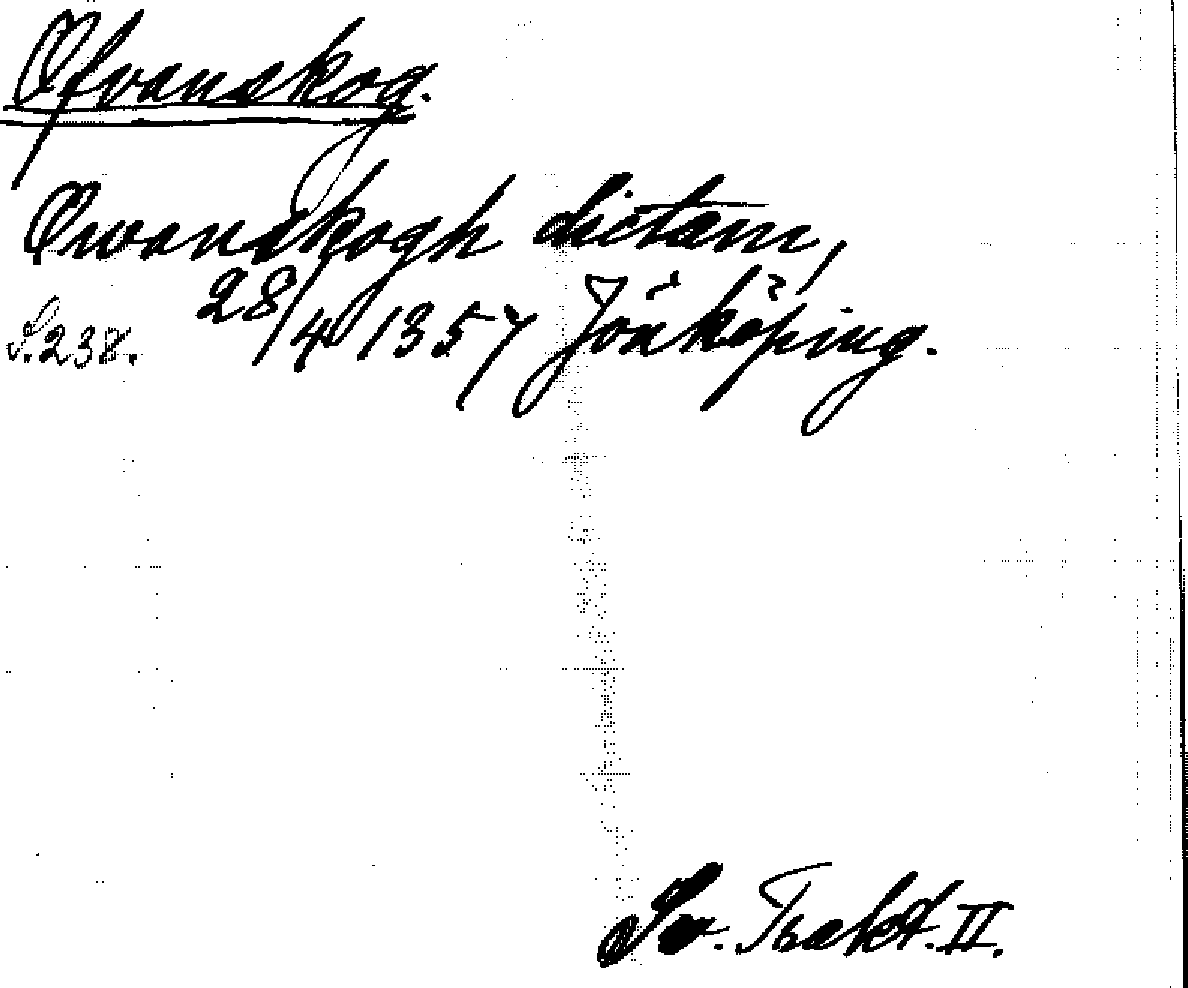 Ofvanskog.
Owanskogh dictam,
28/4 1357 Jönköping.
S. 238.
Sv. Trakt. II.